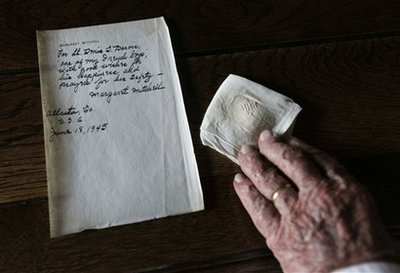 MARGARET MITCHELL
For Lt. Omie L. Baron,
one of my Grady boys,
with good wishes for
his happiness and
prayers for his safety —
Margaret Mitchell
Atlanta, Ga.
U.S.A.
June 18, 1945